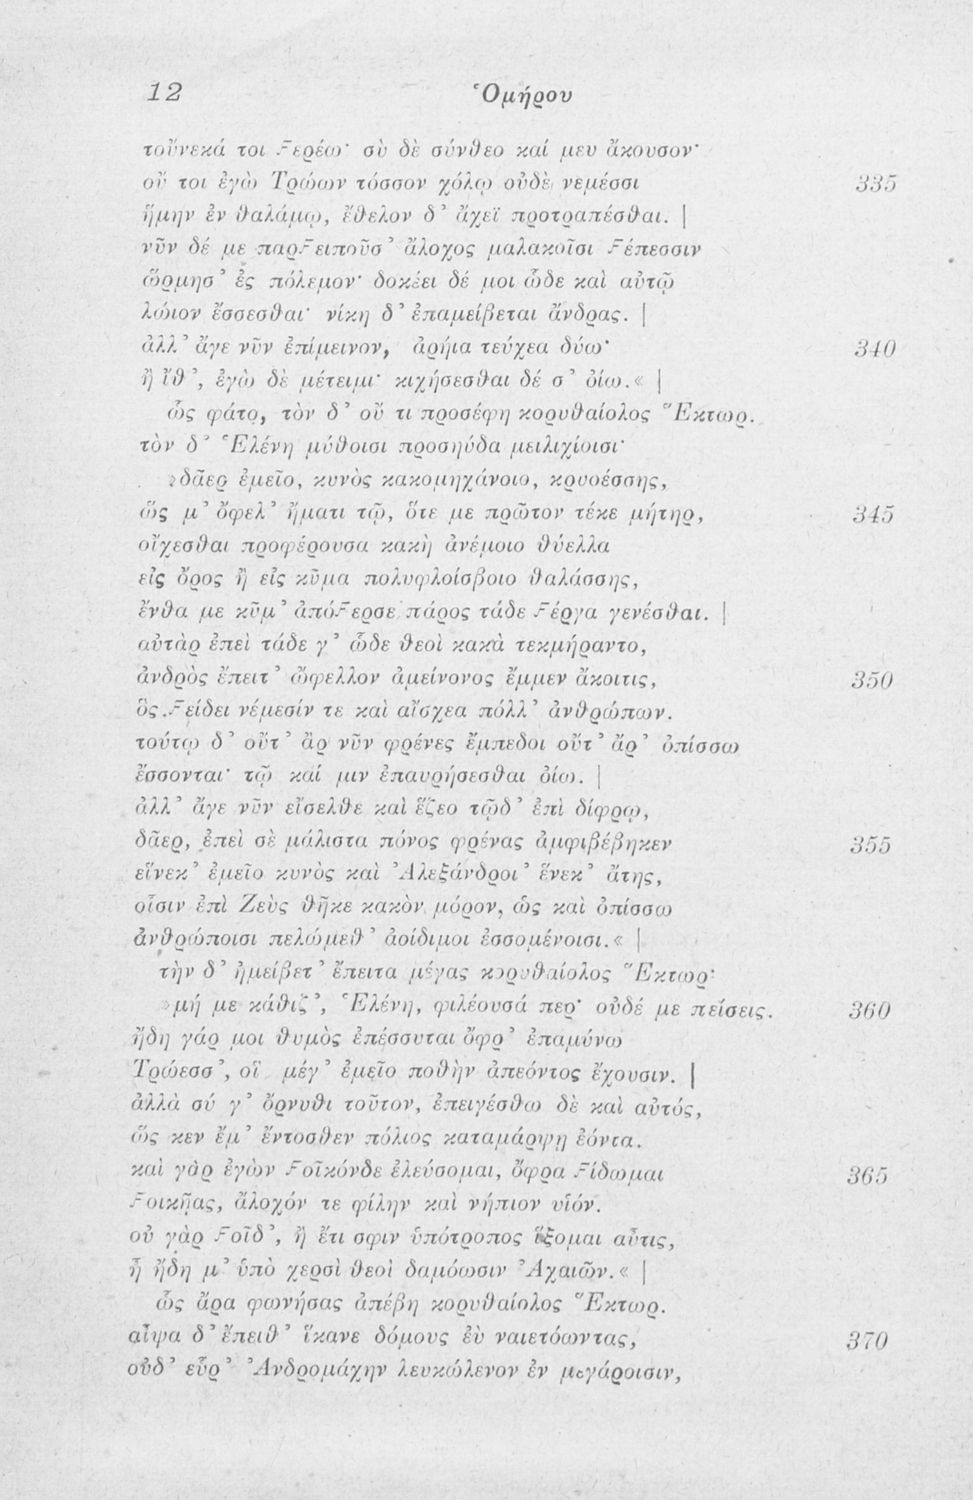 12 Ὁμήρου
τοὔνεκά τοι ϝερέω· σὺ δὲ σύνθεο καί μευ ἄκουσον·
οὔ τοι ἐγὼ Τρώων τόσσον χόλῳ οὐδὲ νεμέσσι 335
ἥμην ἐν θαλάμῳ, ἔθελον δ’ ἄχεϊ προτραπέσθαι. |
νῦν δέ με παρϝειποῦσ’ ἄλοχος μαλακοῖσι ϝέπεσσιν
ὥρμησ’ ἐς πόλεμον· δοκέει δέ μοι ὧδε καὶ αὐτῷ
λώιον ἔσσεσθαι· νίκη δ’ ἐπαμείβεται ἄνδρας. |
ἀλλ’ ἄγε νῦν ἐπίμεινον, ἀρήια τεύχεα δύω· 340
ἢ ἴθ’, ἐγὼ δὲ μέτειμι· κιχήσεσθαι δέ σ’ ὀίω.« |
ὣς φάτο, τὸν δ’ οὔ τι προσέφη κορυθαίολος Ἕκτωρ.
τὸν δ’ Ἑλένη μύθοισι προσηύδα μειλιχίοισι·
»δᾶερ ἐμεῖο, κυνὸς κακομηχάνοιο, κρυοέσσης,
ὥς μ’ ὄφελ’ ἤματι τῷ, ὅτε με πρῶτον τέκε μήτηρ, 345
οἴχεσθαι προφέρουσα κακὴ ἀνέμοιο θύελλα
εἰς ὄρος ἢ εἰς κῦμα πολυφλοίσβοιο θαλάσσης,
ἔνθα με κῦμ’ ἀπόϝερσε πάρος τάδε ϝέργα γενέσθαι. |
αὐτὰρ ἐπεὶ τάδε γ’ ὧδε θεοὶ κακὰ τεκμήραντο,
ἀνδρὸς ἔπειτ’ ὤφελλον ἀμείνονος ἔμμεν ἄκοιτις, 350
ὃς ϝείδει νέμεσίν τε καὶ αἴσχεα πόλλ’ ἀνθρώπων.
τούτῳ δ’ οὔτ’ ἂρ νῦν φρένες ἔμπεδοι οὔτ’ ἂρ’ ὀπίσσω
ἔσσονται· τῷ καί μιν ἐπαυρήσεσθαι ὀίω. |
ἀλλ’ ἄγε νῦν εἴσελθε καὶ ἕζεο τῷδ’ ἐπὶ δίφρῳ,
δᾶερ, ἐπεὶ σὲ μάλιστα πόνος φρένας ἀμφιβέβηκεν 355
εἵνεκ’ ἐμεῖο κυνὸς καὶ Ἀλεξάνδροι’ ἕνεκ’ ἄτης,
οἷσιν ἐπὶ Ζεὺς θῆκε κακὸν μόρον, ὡς καὶ ὀπίσσω
ἀνθρώποισι πελώμεθ’ ἀοίδιμοι ἐσσομένοισι.« |
τὴν δ’ ἠμείβετ’ ἔπειτα μέγας κορυθαίολος Ἕκτωρ·
»μή με κάθιζ’, Ἑλένη, φιλέουσά περ· οὐδέ με πείσεις. 360
ἤδη γάρ μοι θυμὸς ἐπέσσυται ὄφρ’ ἐπαμύνω
Τρώεσσ’, οἳ μέγ’ ἐμεῖο ποθὴν ἀπεόντος ἔχουσιν. |
ἀλλὰ σύ γ’ ὄρνυθι τοῦτον, ἐπειγέσθω δὲ καὶ αὐτός,
ὥς κεν ἔμ’ ἔντοσθεν πόλιος καταμάρψῃ ἐόντα.
καὶ γὰρ ἐγὼν ϝοῖκόνδε ἐλεύσομαι, ὄφρα ϝίδωμαι 365
ϝοικῆας, ἄλοχόν τε φίλην καὶ νήπιον υἱόν.
οὐ γὰρ ϝοῖδ’, ἢ ἔτι σφιν ὑπότροπος ἵξομαι αὖτις,
ἦ ἤδη μ’ ὑπὸ χερσὶ θεοὶ δαμόωσιν Ἀχαιῶν.« |
ὣς ἄρα φωνήσας ἀπέβη κορυθαίολος Ἕκτωρ.
αἶψα δ’ ἔπειθ’ ἵκανε δόμους ἐὺ ναιετόωντας, 370
οὐδ’ εὗρ’ Ἀνδρομάχην λευκώλενον ἐν μεγάροισιν,